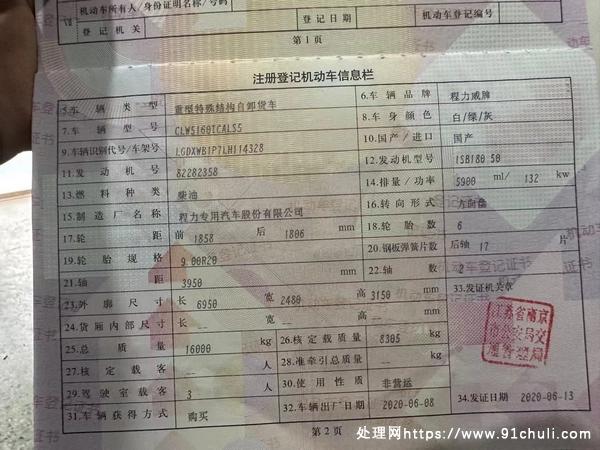 机动车所有人/身份证明名称/号码
登记机关 登记日期 机动车登记编号
第1页
注册登记机动车信息栏
5.车辆类型 重型特殊结构自卸货车 6.车辆品牌 程力威牌
7.车辆型号 CLW5160TCALS5 8.车身颜色 白/绿/灰
9.车辆识别代号/车架号 LGDXWB1P7LH114328 10.国产/进口 国产
11.发动机号 82282358 12.发动机型号 ISB180 50
13.燃料种类 柴油 14.排量/功率 5900 ml/ 132 kw
15.制造厂名称 程力专用汽车股份有限公司 16.转向形式 方向盘
17.轮距 前 1858 后 1806 mm 18.轮胎数 6
19.轮胎规格 9.00R20 20.钢板弹簧片数 后轴 17 片
21.轴距 3950 mm 22.轴数 2
23.外廓尺寸 长 6950 宽 2480 高 3150 mm 33.发证机关章
24.货厢内部尺寸 长 -- 宽 -- 高 -- mm
江苏省南京市公安局交通管理局
25.总质量 16000 kg 26.核定载质量 8305 kg
27.核定载客 -- 人 28.准牵引总质量 -- kg
29.驾驶室载客 3 人 30.使用性质 非营运
31.车辆获得方式 购买 32.车辆出厂日期 2020-06-08 34.发证日期 2020-06-13
第2页
处理网https://www.91chuli.com/